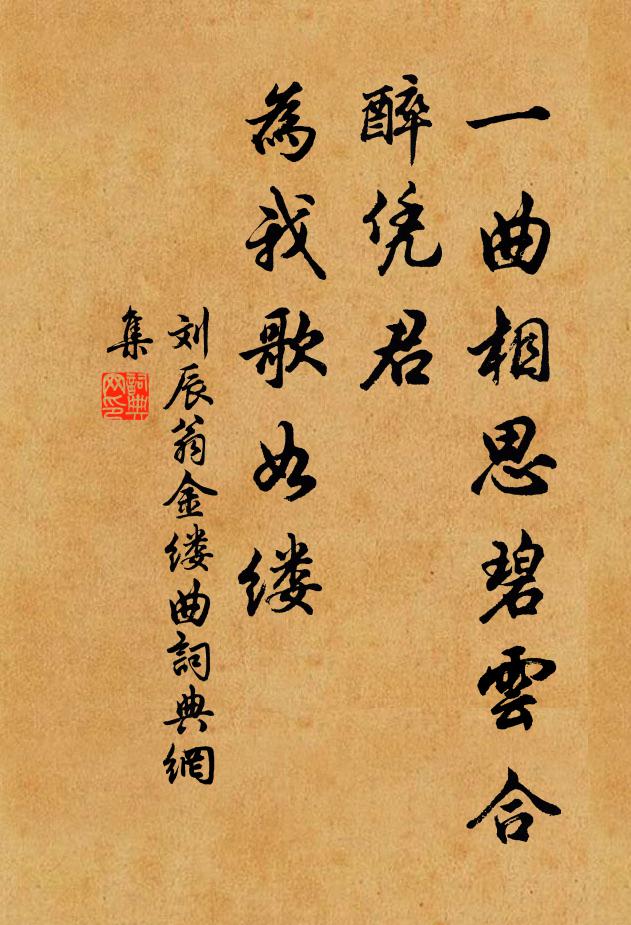 一曲相思碧雲合
醉凭君
為我歌如缕
刘辰翁金缕曲詞典網
集
詞典
网印